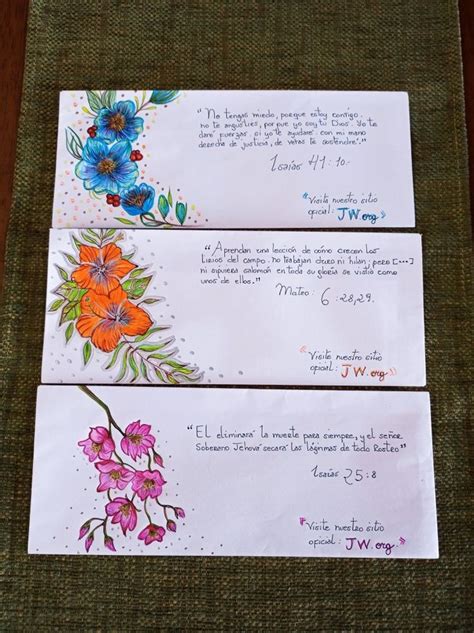 "No tengas miedo, porque estoy contigo.
no te angusties, porque yo soy tu Dios. Yo te
daré fuerzas. sí yo te ayudaré. con mi mano
derecha de justicia, de veras te sostendré."
Isaías 41:10.
"Visita nuestro sitio
oficial: JW.org"
"Aprendan una lección de cómo crecen los
lirios del campo. no trabajan duro ni hilan; pero [...]
ni siquiera salomón en toda su gloria se vistió como
unos de ellos."
Mateo 6:28,29.
"Visite nuestro sitio
oficial: JW.org"
"El eliminará la muerte para siempre, y el señor
Soberano Jehová secará las lágrimas de todo Rostro"
Isaías 25:8
"Visite nuestro sitio
oficial: JW.org."